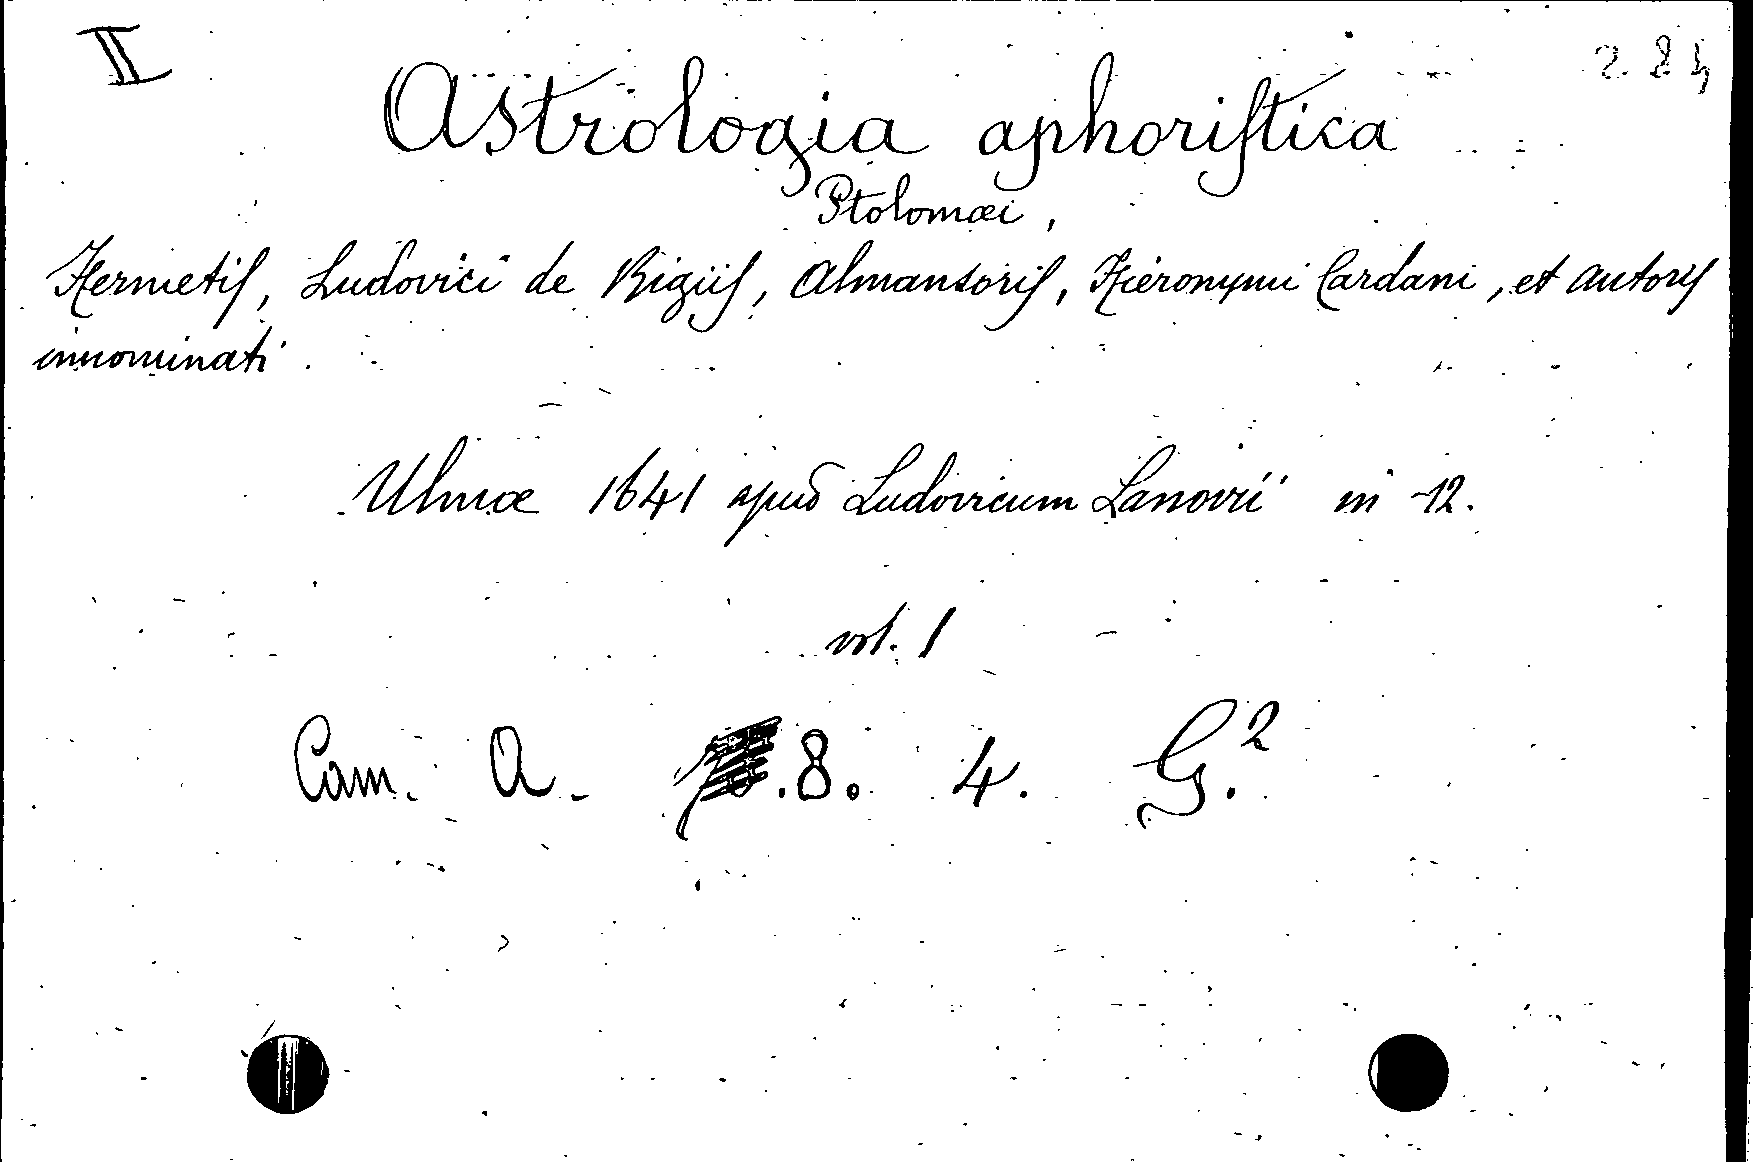 II 284
Astrologia aphoriſtica
Ptolomæi,
Hermetiſ, Ludovici de Rigiiſ, Almansoriſ, Hieronymi Cardani, et autoriſ
innominati.
Ulmæ 1641 apud Ludovicum Lanovii in 12.
vol. 1
Cam. A. .8. 4. G.²